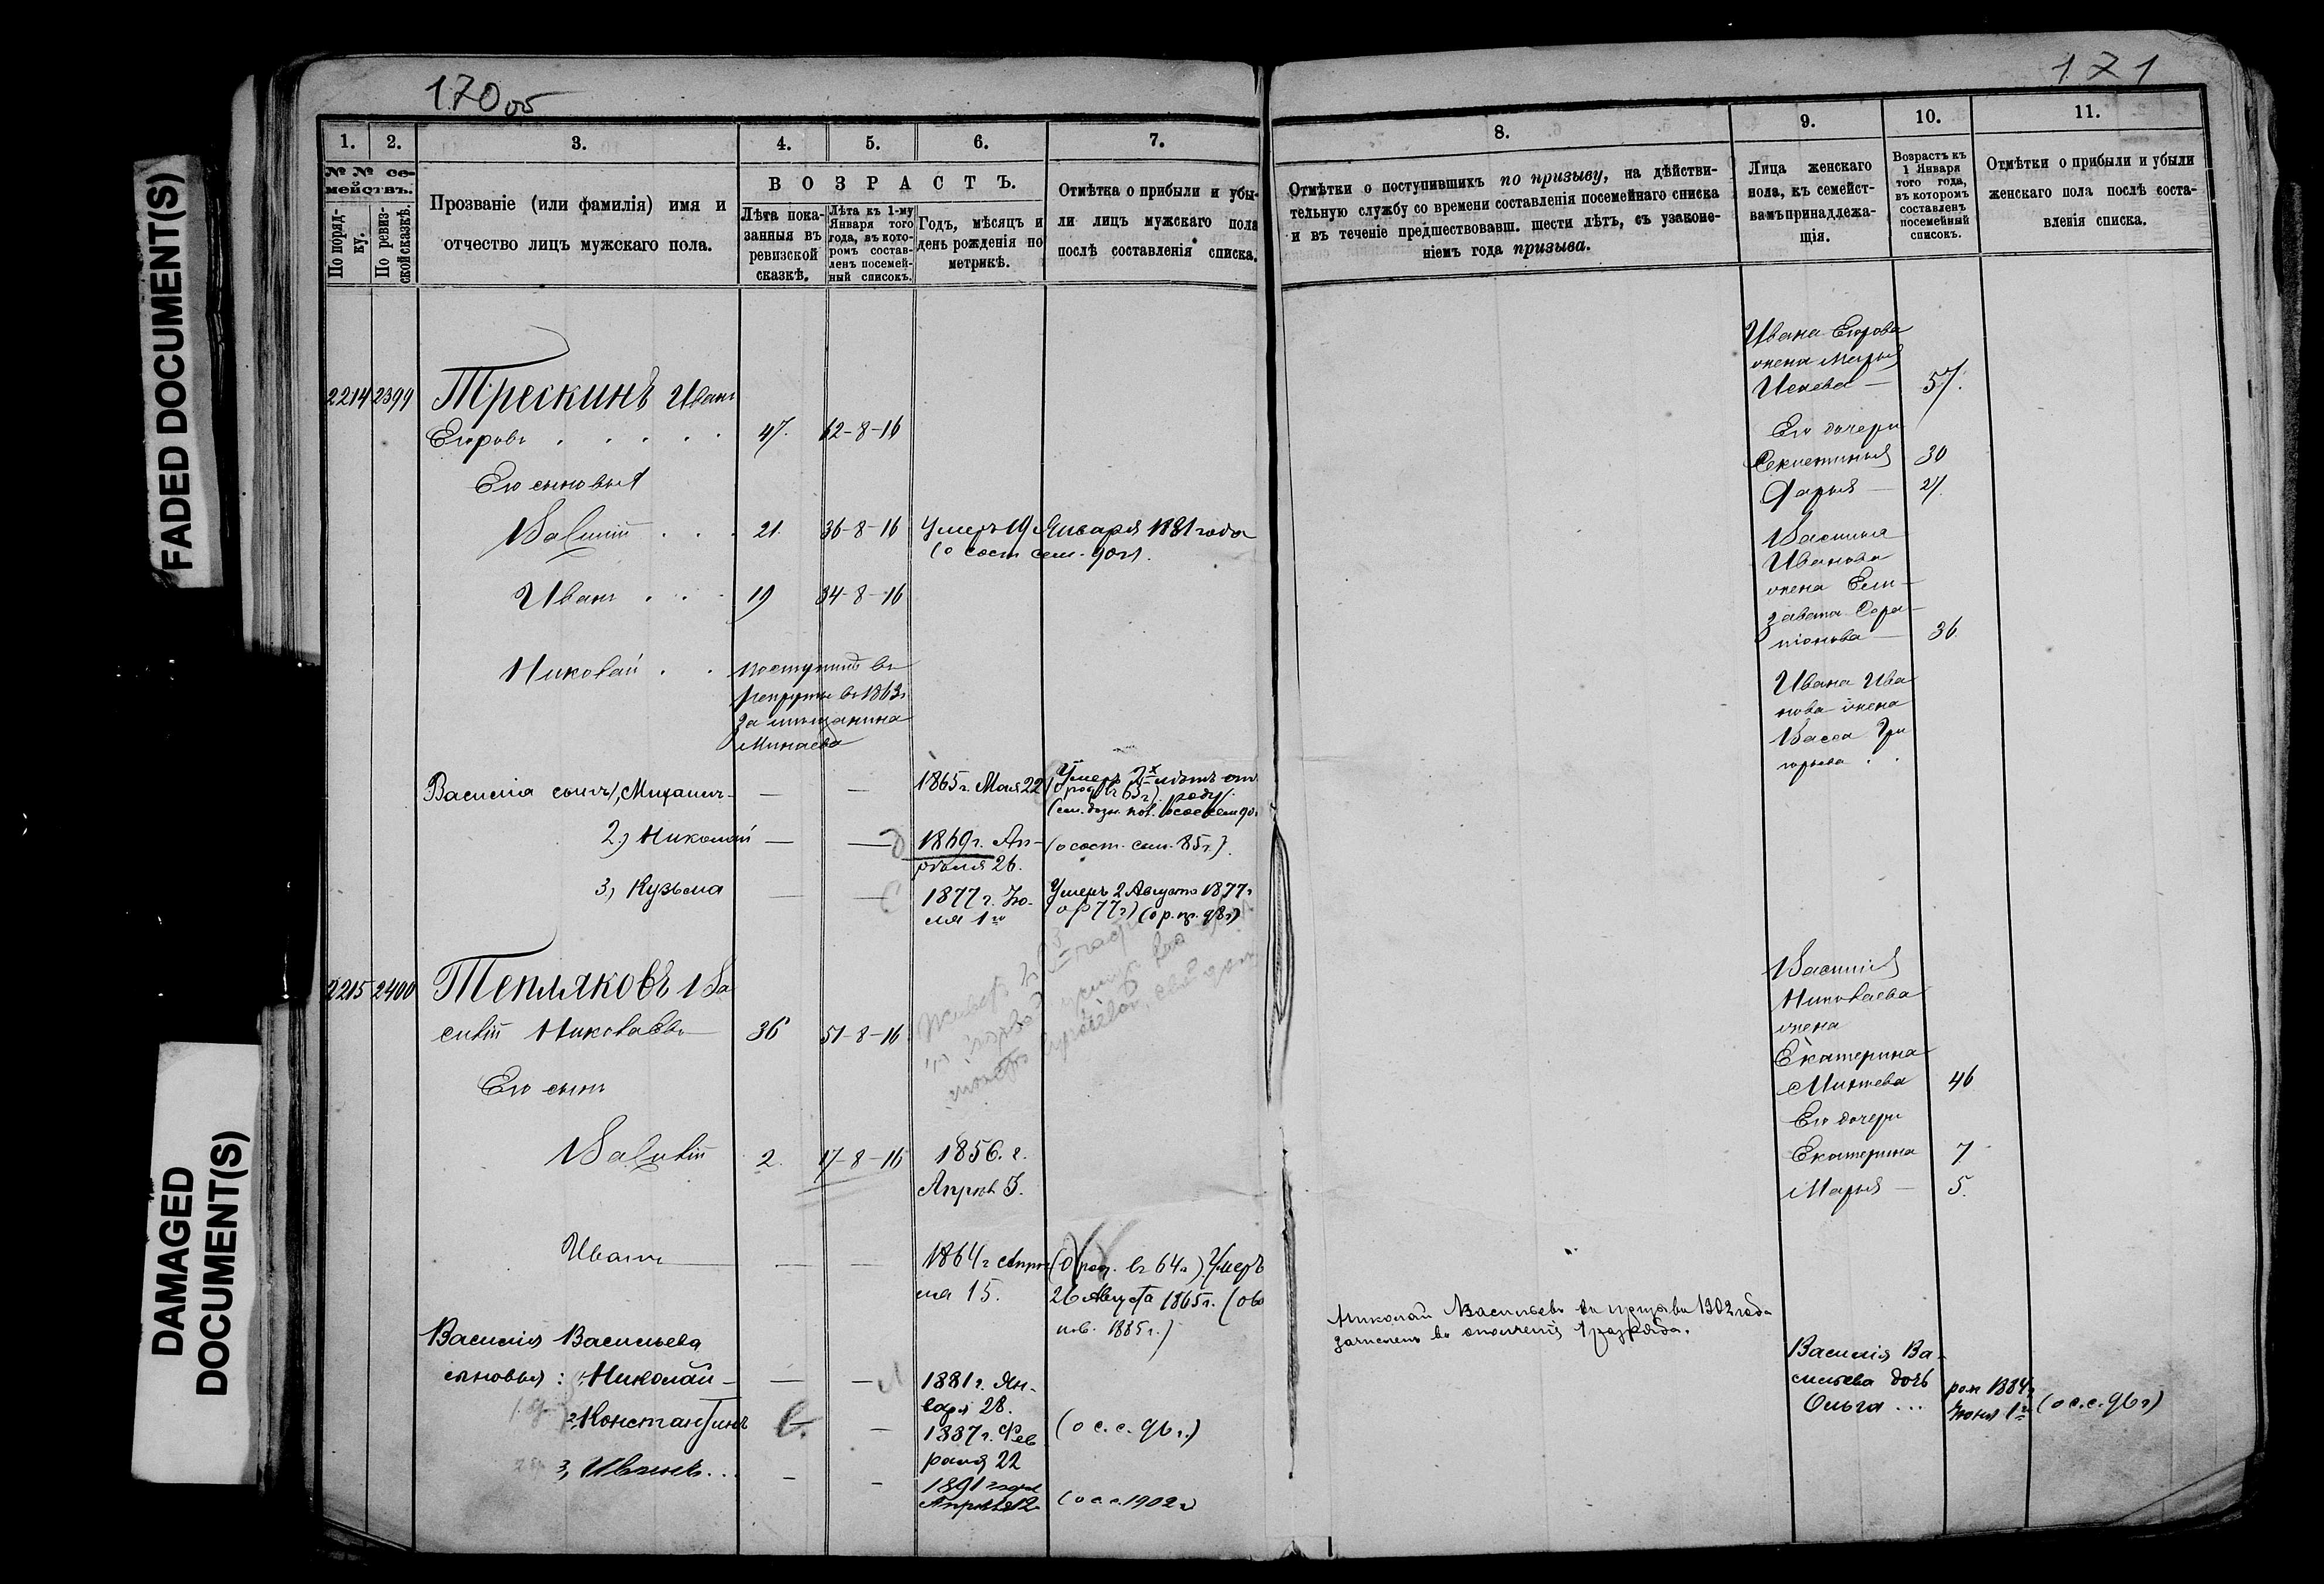 FADED DOCUMENT(S)
DAMAGED
DOCUMENT(S)
170об
1.
2.
3.
4.
5.
6.
7.
№ № се-
мействъ.
По поряд-
ку.
По ревиз-
ской сказкѣ.
Прозваніе (или фамилія) имя и
отчество лицъ мужскаго пола.
ВОЗРАСТЪ.
Лѣта пока-
занныя въ
ревизской
сказкѣ.
Лѣта къ 1-му
Января того
года, въ кото-
ромъ состав-
ленъ посемей-
ный списокъ.
Годъ, мѣсяцъ и
день рожденія по
метрикѣ.
Отмѣтка о прибыли и убы-
ли лицъ мужскаго пола
послѣ составленія списка.
2214 2399 Трескинъ Иванъ
Егоровъ . . . . . 47. 62-8-16
Его сыновья
Василій . . . 21. 36-8-16 Умеръ 19 Января 1881 года
(о сост. сем. 90 г.
Иванъ . . . 19 34-8-16
Николай . . поступилъ въ
рекруты въ 1863г.
за мѣщанина
Минаева
Василія сынъ 1, Михаилъ — — 1865 г. Мая 22
2.) Николай — — 1869 г. Ап-
рѣля 26.
(о сост. сем. 85 г.)
3, Кузьма — — 1877 г. Ію-
ля 1го
Умеръ 2 Августа 1877 г.
(о р 77 г) (о р. пр. 98 г)
2215 2400 Тепляковъ Ва
силій Николаевъ 36 51-8-16
Его сынъ
Василій 2. 17-8-16 1856. г.
Апрѣл 5.
Иванъ — — 1864 г Апрѣ
ля 15.
(о род. въ 64 г.) Умеръ
26 Августа 1865 г. (объ
1885 г.)
Василія Васильева
сыновья: 1, Николай — — 1881 г. Ян-
варя 28.
2, Константинъ — 1887 г. Фев
раля 22
(о с. с. 96 г.)
3, Иванъ... — — 1891 года
Апрѣля 12
(о с. с. 1902 г
171
8.
9.
10.
11.
Отмѣтки о поступившихъ по призыву, на дѣйстви-
тельную службу со времени составленія посемейнаго списка
и въ теченіе предшествовавш. шести лѣтъ, съ узаконе-
ніемъ года призыва.
Лица женскаго
пола, къ семейст-
вамъ принадлежа-
щія.
Возрастъ къ
1 Января
того года,
въ которомъ
составленъ
посемейный
списокъ.
Отмѣтки о прибыли и убыли
женскаго пола послѣ соста-
вленія списка.
Ивана Егорова
жена Марья
Исаева — 57.
Его дочери
Секлетинья 30
Дарья — 27.
Василія
Иванова
жена Ели-
завета Сера-
піонова — 36.
Ивана Ива
нова жена
Васса Гри
горьева . .
Василія
Николаева
жена
Екатерина
Михѣева 46
Его дочери
Екатерина 7
Марья — 5.
Николай Васильевъ въ призывъ 1902 года
зачисленъ въ ополченіе 1 разряда.
Василія Ва-
сильева дочь
Ольга ...
рож 1884 г
Іюня 1го
(о с. с. 96 г)